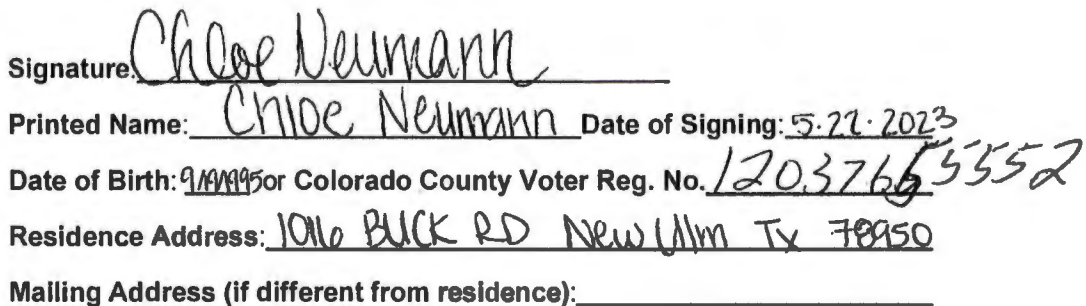 Signature: Chloe Neumann
Printed Name: Chloe Neumann Date of Signing: 5.22.2023
Date of Birth: or Colorado County Voter Reg. No.
Residence Address: BUCK RD New Ulm Tx 78950
Mailing Address (if different from residence):